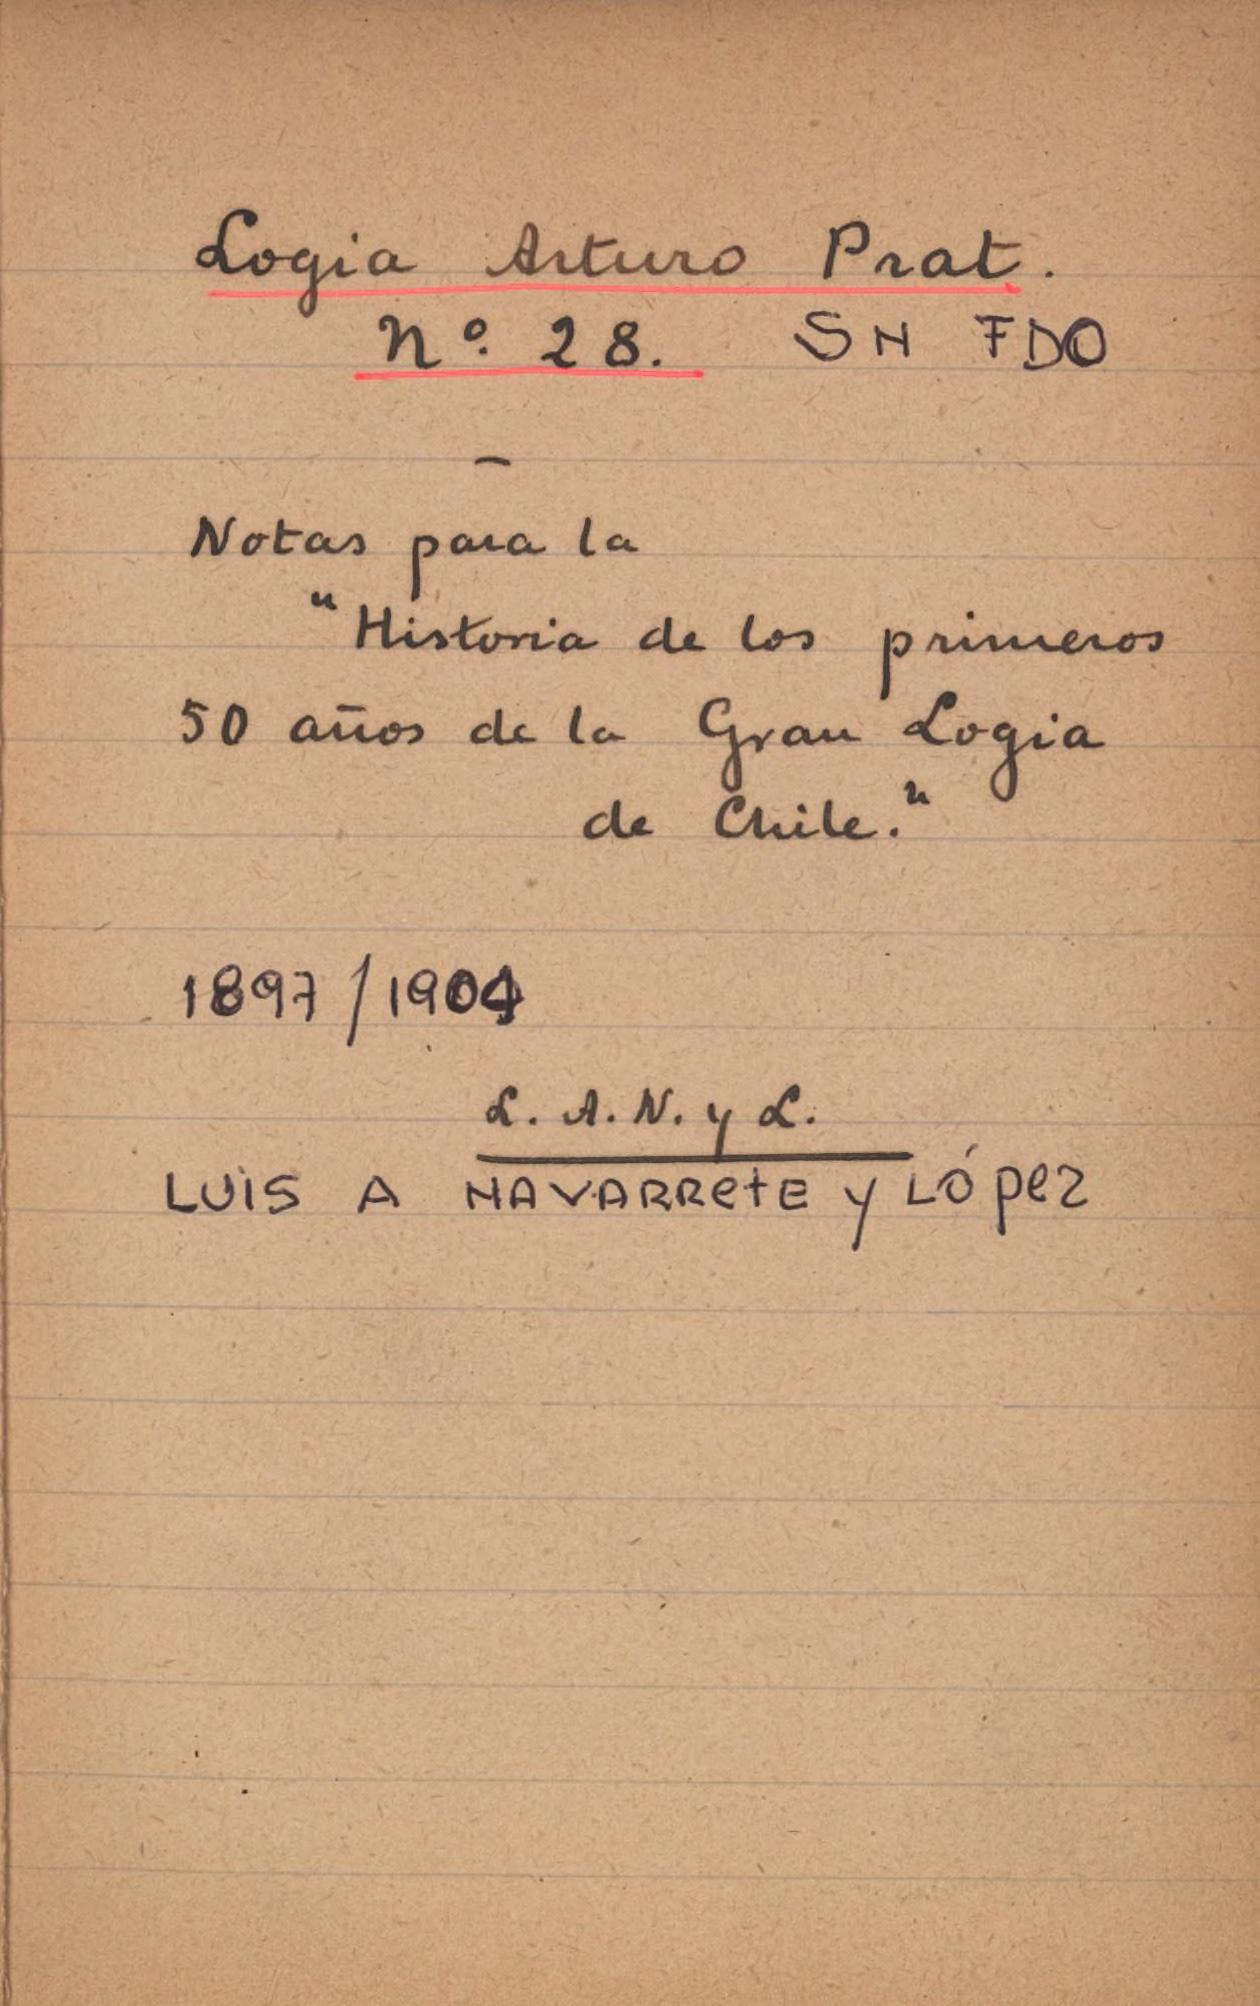 Logia Arturo Prat.
Nº. 28. SN FDO
–
Notas para la
"Historia de los primeros
50 años de la Gran Logia
de Chile."
1897/1904
L. A. N. y L.
LUIS A NAVARRETE y LÓPEZ